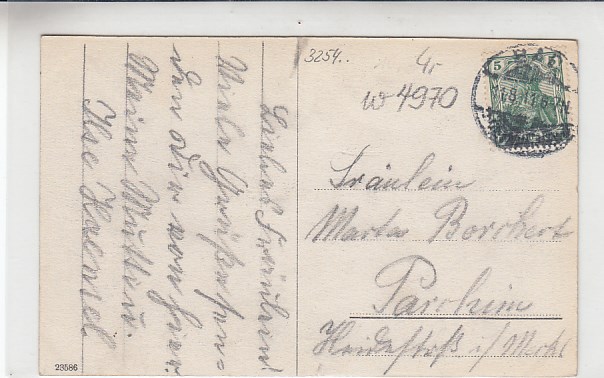 Liebes Fräulein!
Viele Grüße sen-
den dir von hier
Meine Mutti u.
Ilse Haensel
3254..
4r
w 4970
5
Fräulein
Marta Borchert
Parchim
Heidestraß i/ Meckl
23586